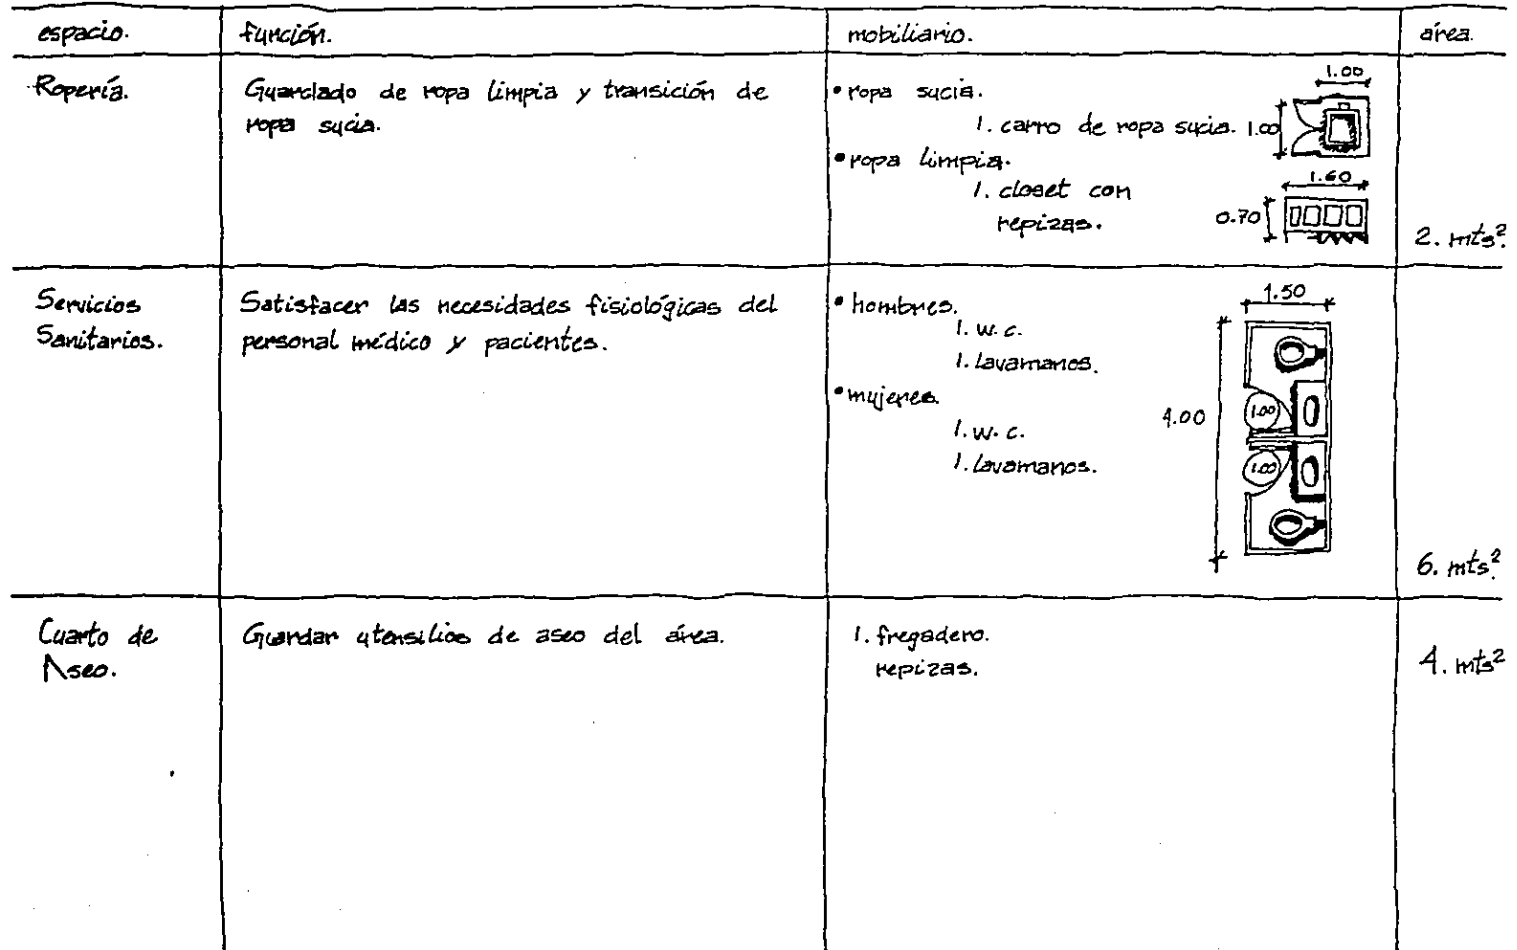 espacio.
función.
mobiliario.
área.
Ropería.
Guardado de ropa limpia y transición de
ropa sucia.
• ropa sucia.
1. carro de ropa sucia.
• ropa limpia.
1. closet con
repizas.
1.00
1.00
1.60
0.70
2. mts².
Servicios
Sanitarios.
Satisfacer las necesidades fisiológicas del
personal médico y pacientes.
• hombres.
1. w.c.
1. lavamanos.
• mujeres.
1. w.c.
1. lavamanos.
1.50
4.00
1.00
1.00
6. mts².
Cuarto de
Aseo.
Guardar utensilios de aseo del área.
1. fregadero.
repizas.
4. mts²